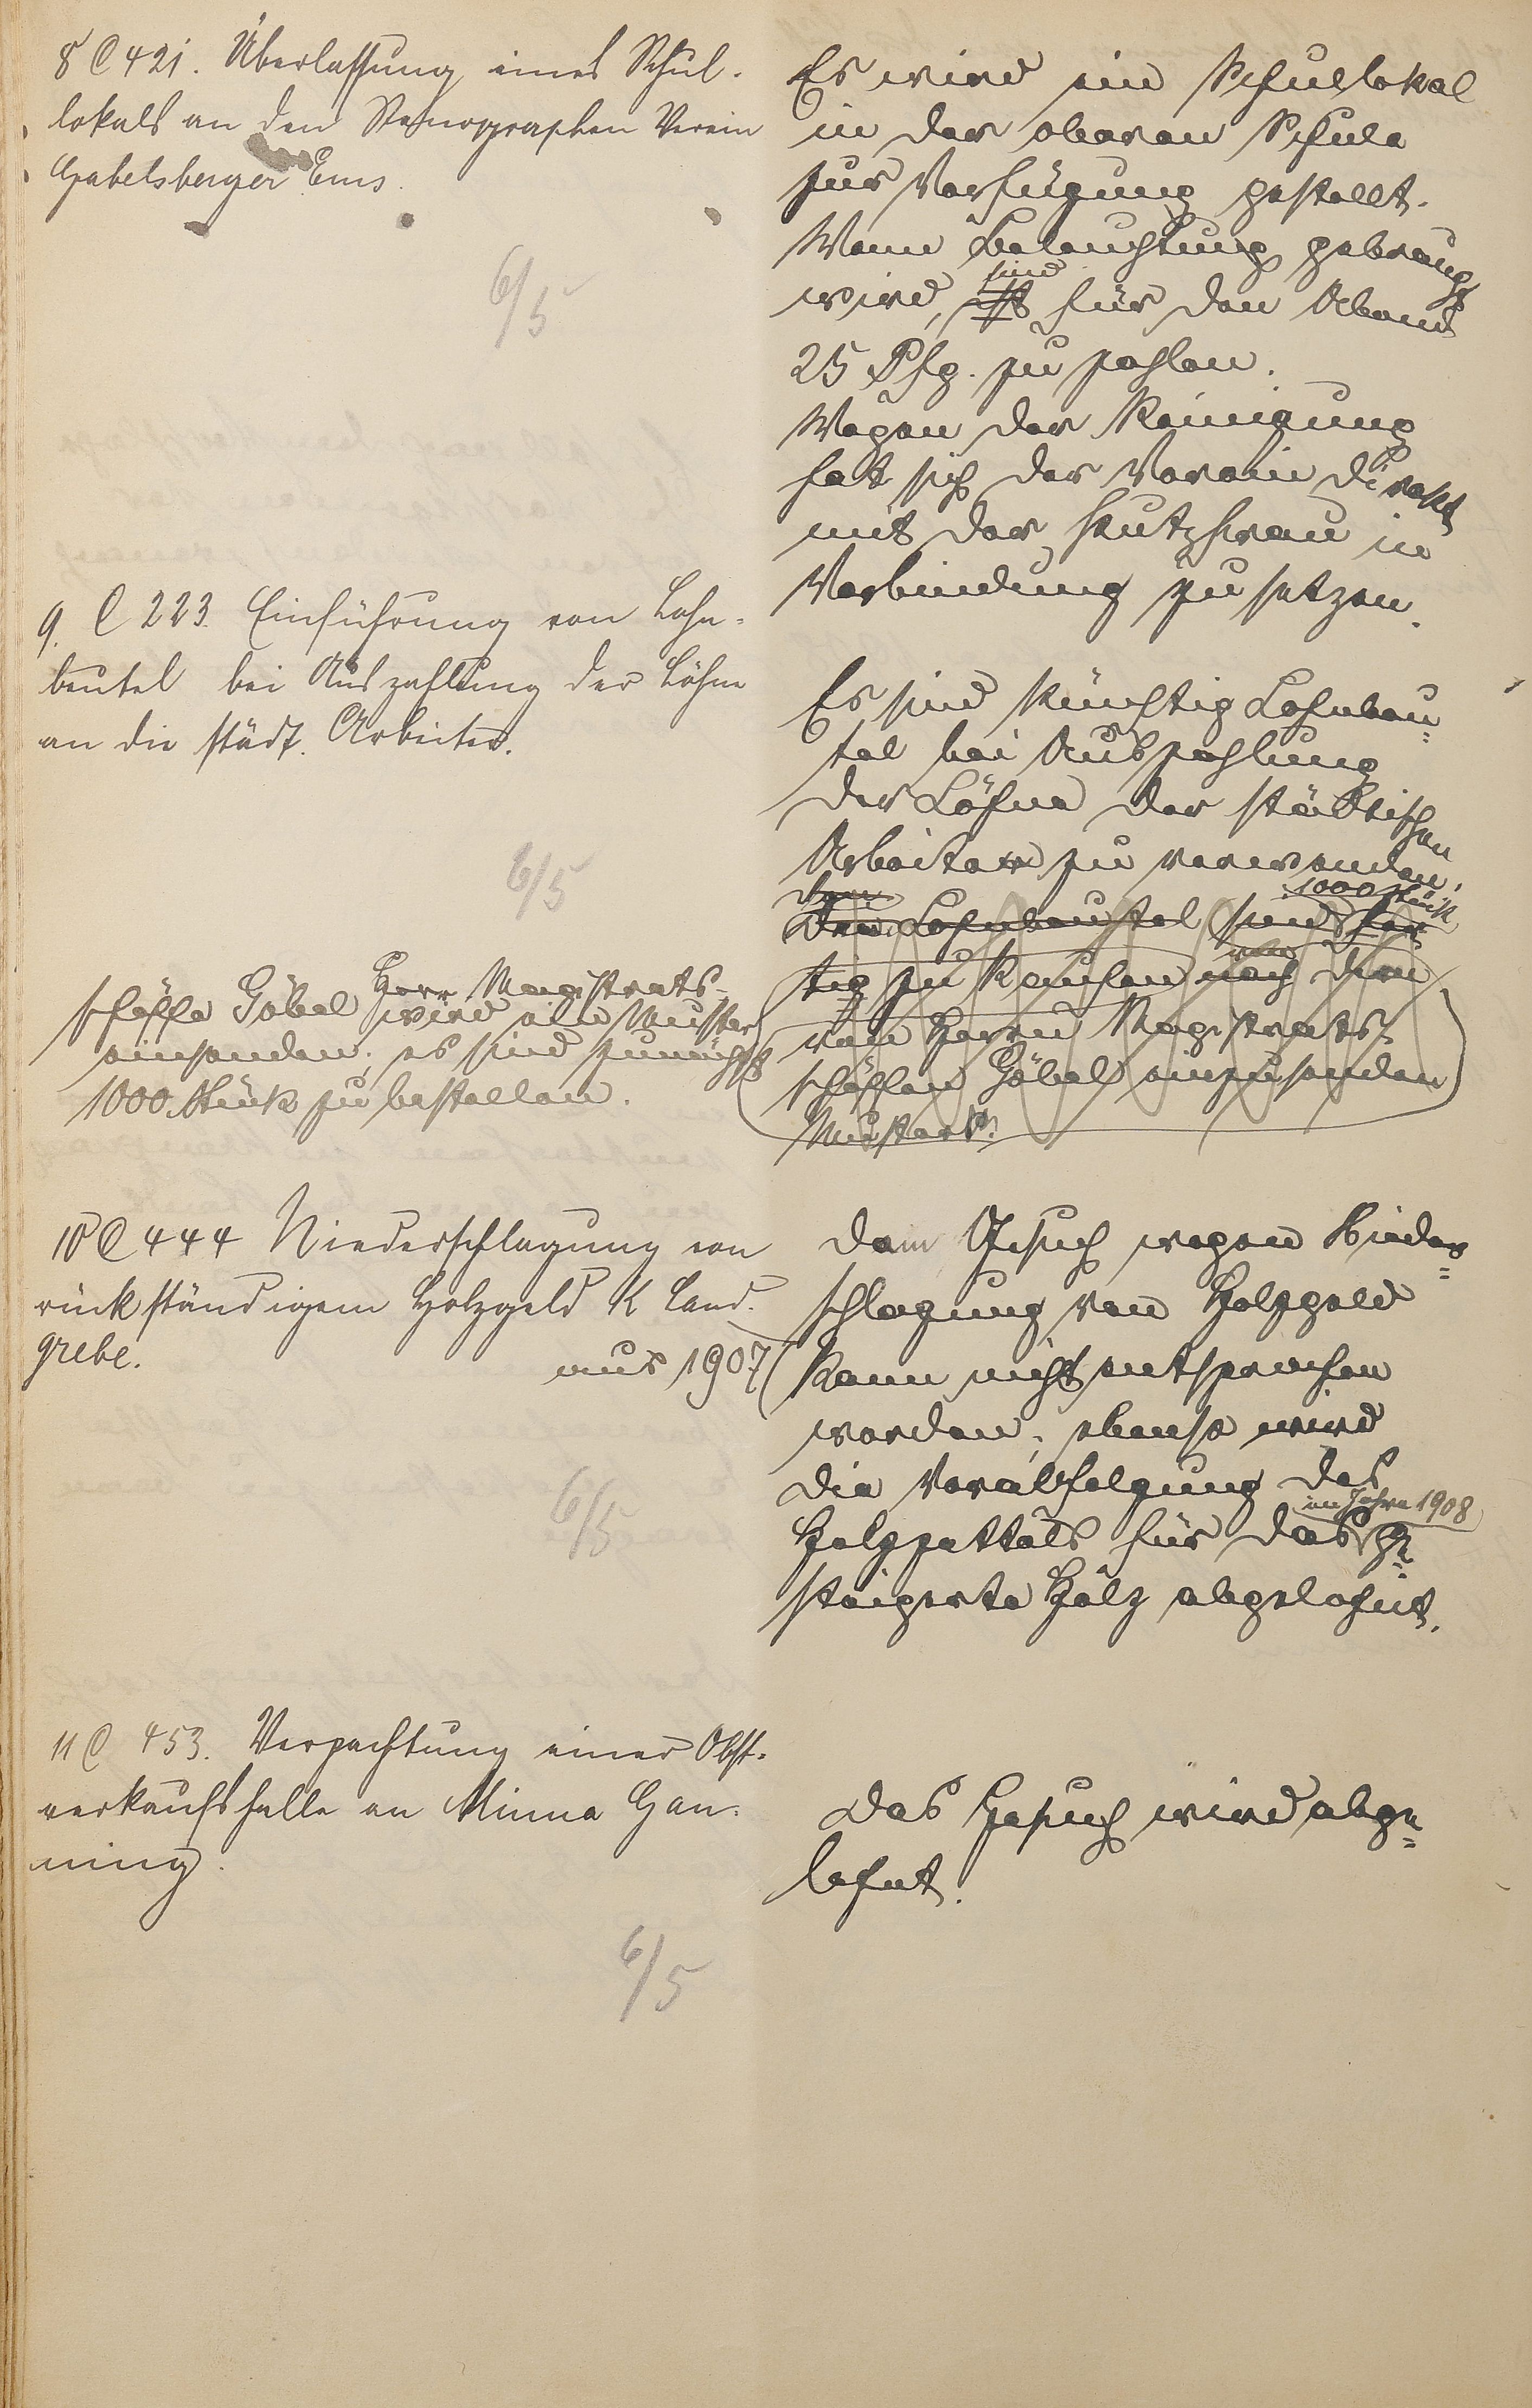 8 C 421. Überlassung eines Schul-
lokals an den Stenographen Verein
Gabelsberger Ems.
6/5
Es wird ein Schullokal
in der oberen Schule
zur Verfügung gestellt.
Wenn Beleuchtung gebraucht
sind
wird, ist für den Abend
25 Pfg. zu zahlen.
Wegen der Reinigung
hat sich der Verein direkt
mit der Putzfrau in
Verbindung zu setzen.
9. C 223. Einführung von Lohn-
beutel bei Auszahlung der Löhne
an die städt. Arbeiter.
6/5
Herr Magistrats-
schöffe Göbel wird ein Muster
einsenden; es sind zunächst
1000 Stück zu bestellen.
Es sind künftig Lohnbeu-
tel bei Auszahlung
der Löhne der städtischen
Arbeiter zu verwenden.
1000 Stück
Die Lohnbeutel sind fer-
tig zu kaufen nach dem
von Herrn Magistrats-
schöffen Göbel einzusenden
Muster.
10 C 444 Niederschlagung von
rückständigem Holzgeld K Land-
grebe.
aus 1907
6/5
Dem Gesuch wegen Nieder-
schlagung von Holzgeld
kann nicht entsprochen
werden; ebenso wird
die Verabfolgung des
im Jahre 1908
Holzzettels für das ge-
steigerte Holz abgelehnt.
11 C 453. Verpachtung einer Obst-
verkaufshalle an Minna Gan-
ning.
6/5
Das Gesuch wird abge-
lehnt.